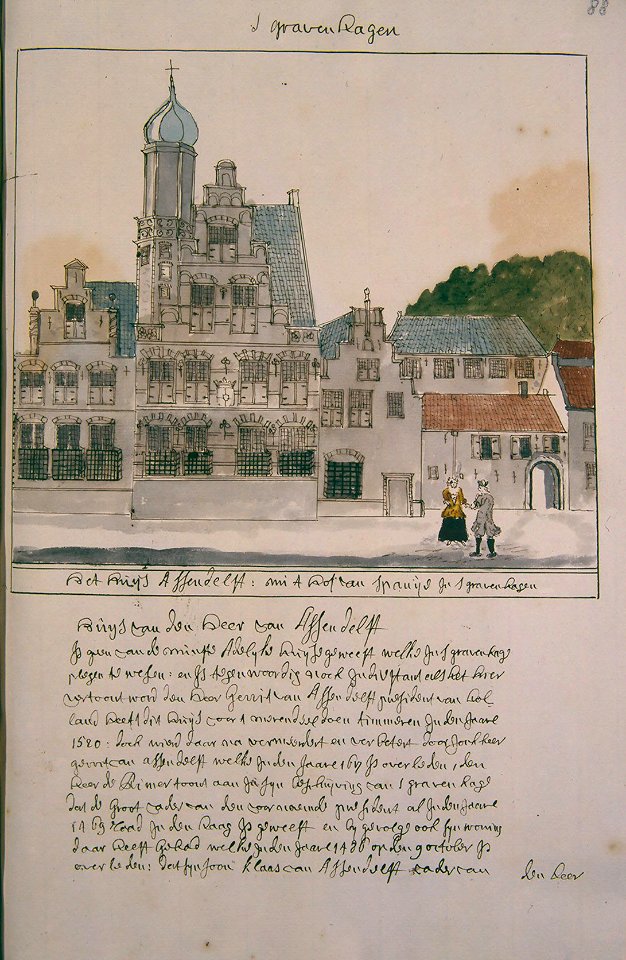 88
S gravenhagen
Het Huijs Assendelft: nu t Hof van Spanije In S gravenhagen
Huijs van den Heer van Assendelft
Is geen van de minste Adelyke Huijse geweest welke In S gravenhage
plegen te wesen: en Is tegenwoordig nog In dien stant als het hier
vertoont word den Heer Gerrit van Assendelft president van hol
land heeft dit Huijs voor t merendeel doen timmeren In den Jaare
1580: doch wierd daar na vermeerdert en verbetert door Jonkheer
gerrit van assendelft welke In den Jaare 1617 Is overleden, den
Heer de Rimer toont aan In syn beschryving van S gravenhage
dat de Groot vader van den voornoemde president al In den Jaare
1469 raad In den Haag Is geweest en by gevolge ook syn woning
daar heeft gehad welke In den Jaare 1486 op den 9 october Is
overleden: dat syn soon Klaas van Assendelft vader van
den heer